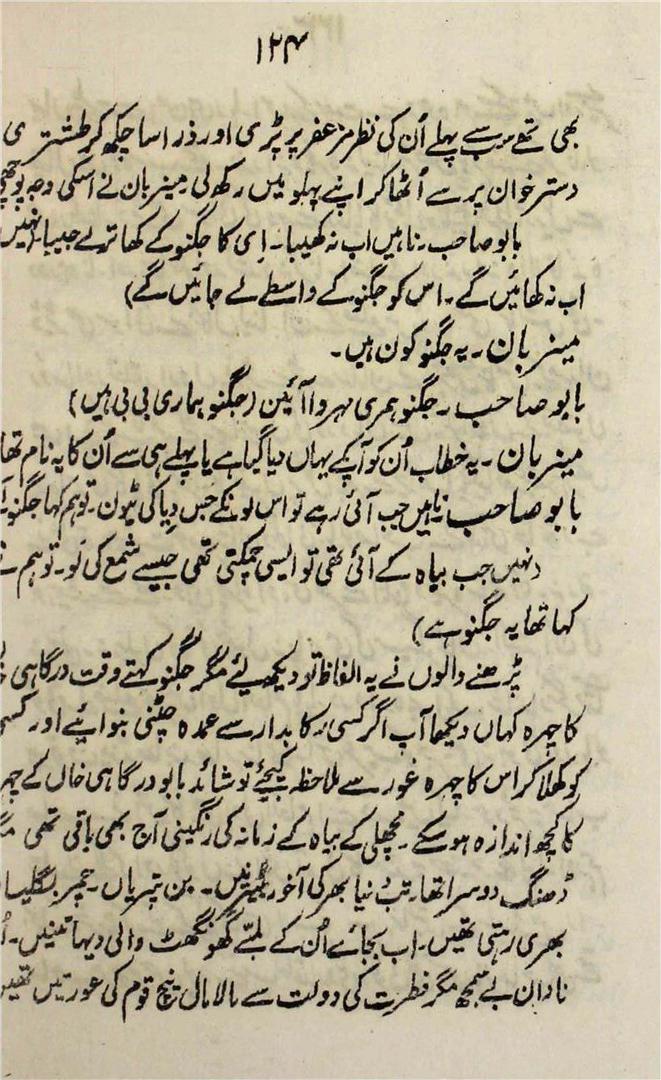 ۱۲۴
بھی تھے سب سے پہلے اُن کی نظر مزعفر پر پڑی اور ذرا سا چکھ کر طشتری
دسترخوان پر سے اُٹھا کر اپنے پہلو میں رکھ لی میزبان نے اسکی وجہ پوچھی
بابو صاحب۔ ناہیں اب نہ کھیبا۔ اِی کا جگنو کے کھاترلے جیبا۔ نہیں
اب نہ کھائیں گے۔ اس کو جگنو کے واسطے لے جائیں گے)
میزبان۔ یہ جگنو کون ہیں۔
بابو صاحب۔ جگنو ہمری مہروا آئین (جگنو ہماری بی بی ہیں)
میزبان۔ یہ خطاب اُن کو آپکے یہاں دیا گیا ہے یا پہلے ہی سے اُن کا یہ نام تھا
بابو صاحب ناہیں جب آئی رہے تو اس لونکے جس دِیا کی ٹیون۔ تو ہم کہا جگنو
نہیں جب بیاہ کے آئی تھی تو ایسی چمکتی تھی جیسے شمع کی لَو۔ تو ہم
کہا تھا یہ جگنو ہے)
پڑھنے والوں نے یہ الفاظ تو دیکھ لئے مگر جگنو کہتے وقت درگاہی
کا چہرہ کہاں دیکھا آپ اگر کسی رکابدار سے عمدہ چٹنی بنوائیے اور کسی
کو کھلا کر اس کا چہرہ غور سے ملاحظہ کیجئے تو شائد بابو درگاہی خاں کے
کا کچھ اندازہ ہو سکے۔ مچھلی کے بیاہ کے زمانہ کی رنگینی آج بھی باقی تھی
ڈھنگ دوسرا تھا۔ تب دُنیا بھر کی آخور ۔ بن
بھری رہتی تھیں۔ اب بجائے اُن کے لمبے گھونگھٹ والی دیہاتنیں۔
نادان بے سمجھ مگر فطرت کی دولت سے مالا مال نیچ قوم کی عورتیں تھیں